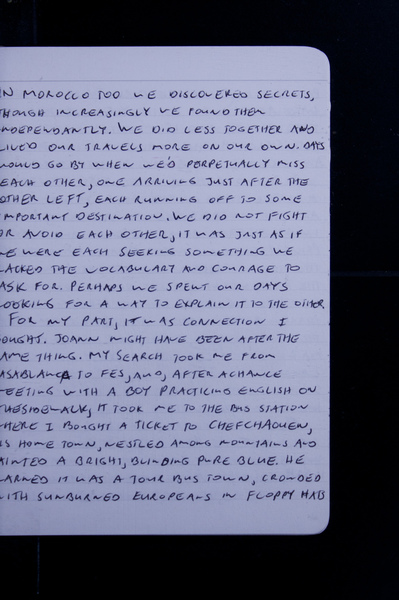 IN MOROCCO TOO WE DISCOVERED SECRETS,
THOUGH INCREASINGLY WE FOUND THEM
INDEPENDANTLY. WE DID LESS TOGETHER AND
LIVED OUR TRAVELS MORE ON OUR OWN. DAYS
WOULD GO BY WHEN WE'D PERPETUALLY MISS
EACH OTHER, ONE ARRIVING JUST AFTER THE
OTHER LEFT, EACH RUNNING OFF TO SOME
IMPORTANT DESTINATION. WE DID NOT FIGHT
OR AVOID EACH OTHER, IT WAS JUST AS IF
WE WERE EACH SEEKING SOMETHING WE
LACKED THE VOCABULARY AND COURAGE TO
ASK FOR. PERHAPS WE SPENT OUR DAYS
LOOKING FOR A WAY TO EXPLAIN IT TO THE OTHER.
FOR MY PART, IT WAS CONNECTION I
SOUGHT. JOANN MIGHT HAVE BEEN AFTER THE
SAME THING. MY SEARCH TOOK ME FROM
CASABLANCA TO FES, AND, AFTER A CHANCE
MEETING WITH A BOY PRACTICING ENGLISH ON
THE SIDEWALK, IT TOOK ME TO THE BUS STATION
WHERE I BOUGHT A TICKET TO CHEFCHAOUEN,
HIS HOME TOWN, NESTLED AMONG MOUNTAINS AND
PAINTED A BRIGHT, BLINDING PURE BLUE. HE
WARNED IT WAS A TOUR BUS TOWN, CROWDED
WITH SUNBURNED EUROPEANS IN FLOPPY HATS